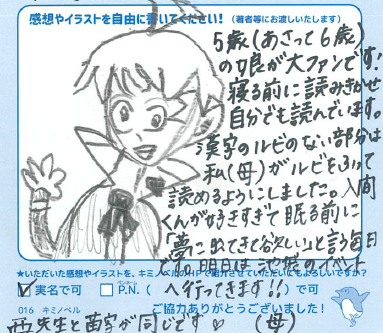 感想やイラストを自由に書いてください！（著者等にお渡しいたします）
5歳(あさって6歳)
の娘が大ファンです!
寝る前に読みきかせ
自分でも読んでいます。
漢字のルビのない部分は
私(母)がルビをふって
読めるようにしました。入間
くんが好きすぎて眠る前に
「夢に出てきて欲しい」と言う毎日
です。明日は池袋のイベント
へ行ってきます!!
(母)
★いただいた感想やイラストを、キミノベルのHPで紹介させていただいてもよろしいですか？
☑実名で可 □P.N.( ペンネーム )で可
ご協力ありがとうございました！
016 キミノベル
西先生と苗字が同じです♡